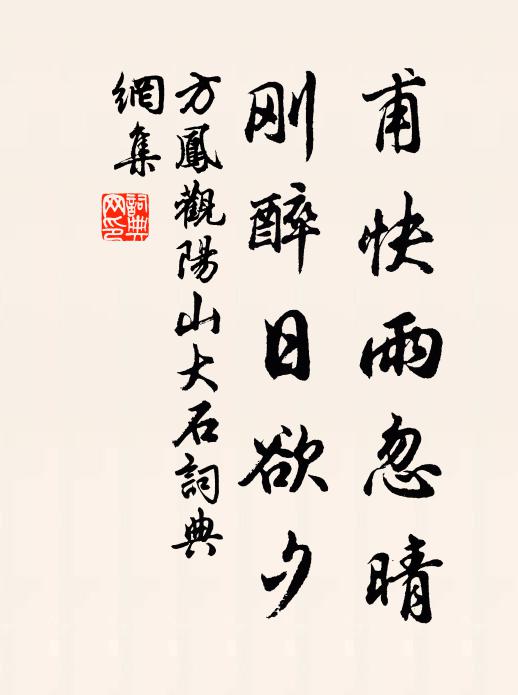 甫快雨忽晴
刚醉日欲夕
方鳳觀陽山大石詞典
網集
詞典
网印